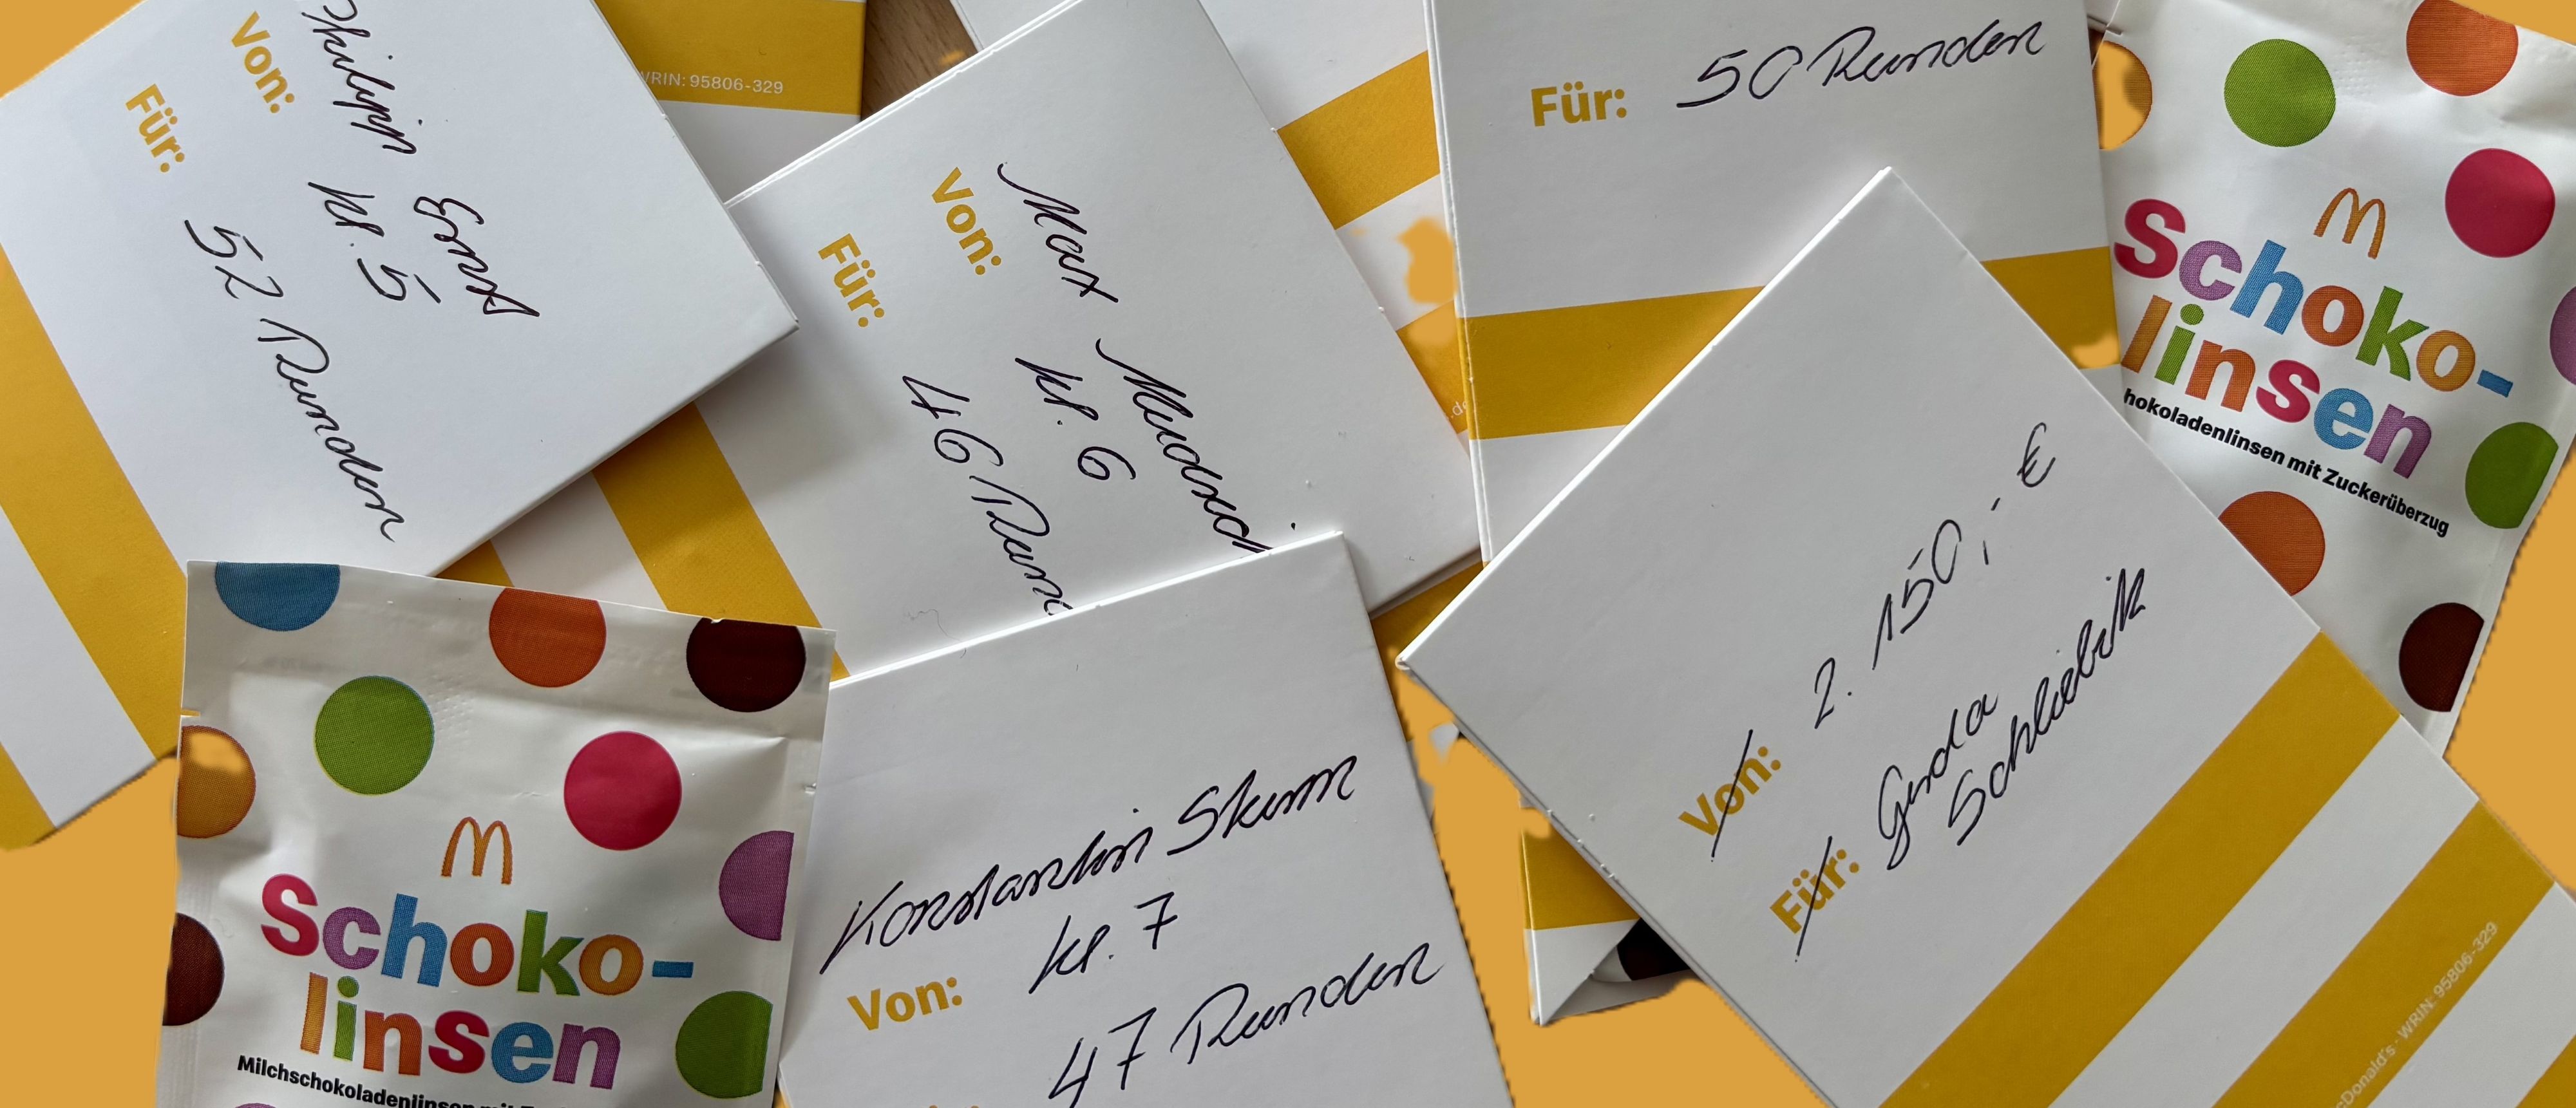 Von: Philipp Ernst
Kl. 5
Für: 52 Runden
WRIN: 95806-329
Von: Max
Kl. 6
Für: 46
Für: 50 Runden
Schoko-
linsen
hokoladenlinsen mit Zuckerüberzug
Schoko-
linsen
Milchschokoladenlinsen mit
Konstantin
Kl. 7
Von:
47 Runden
Von: 2.150,- €
Für: Gerda
Schliebik
cDonald's · WRIN: 95806-329